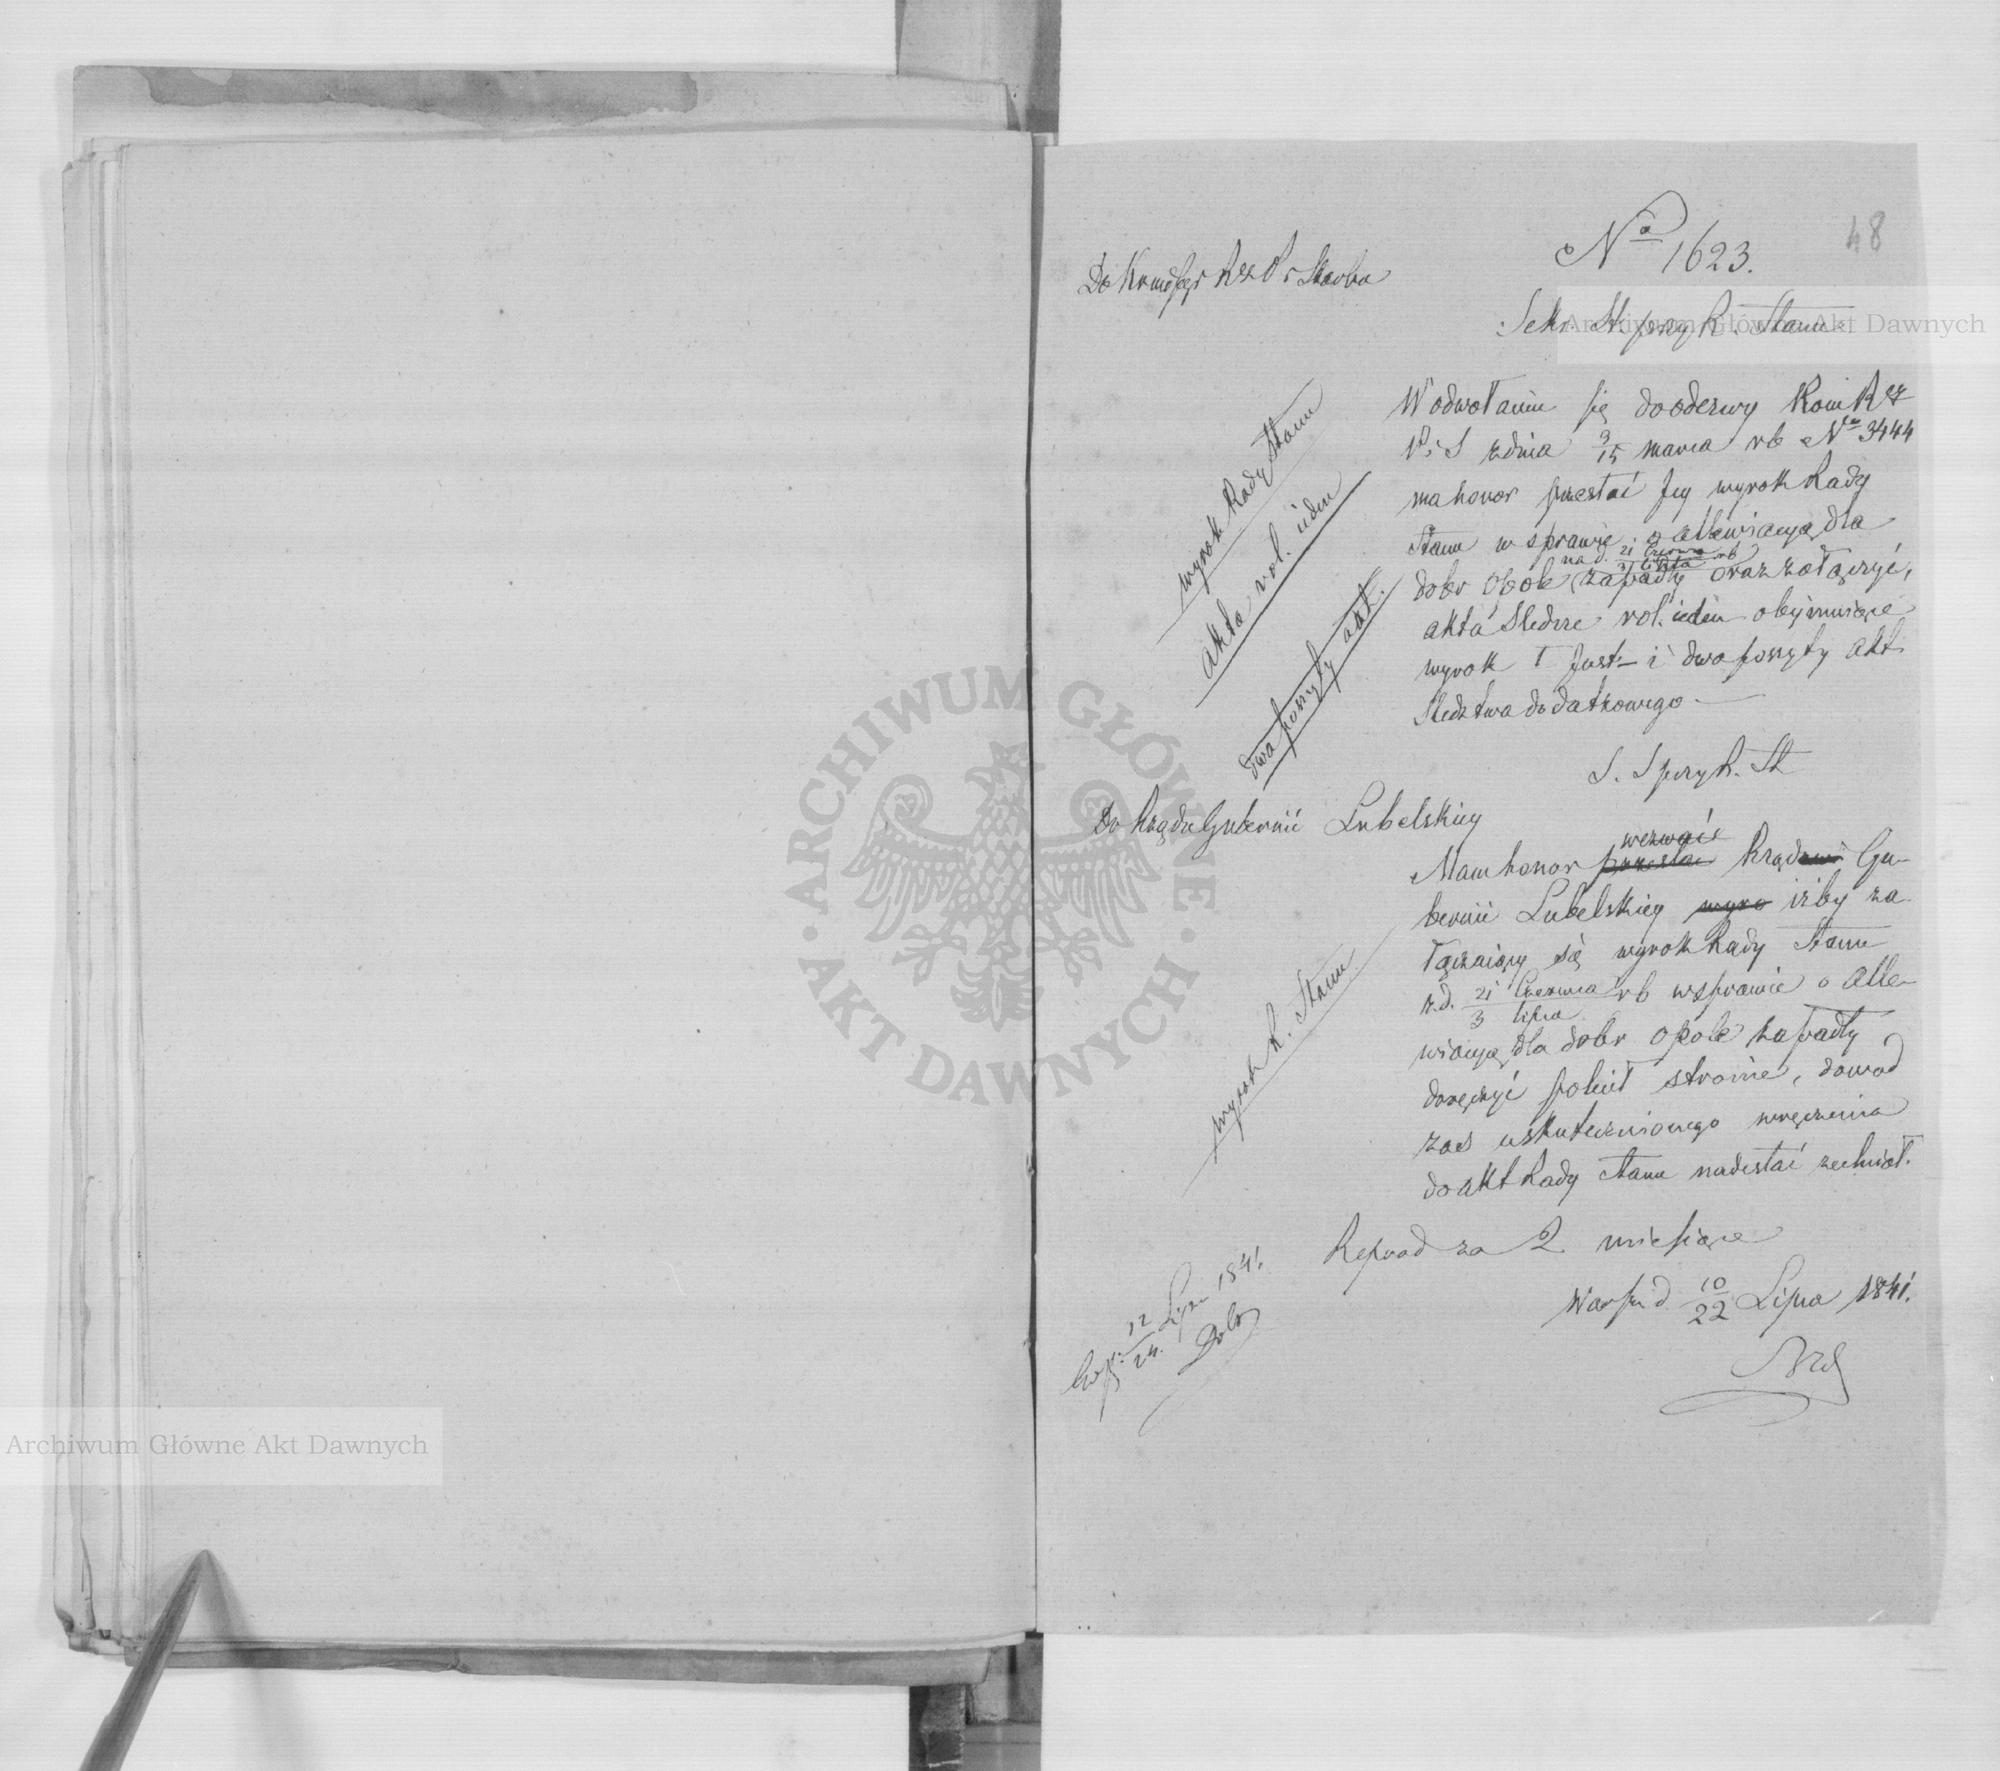 48
No 1623.
Do Kommissyi Rz P i Skarbu
Sekr. St. przy R. Stanu
W odwołaniu się do odezwy Kom Rz
P. i S z dnia 3/15 marca rb No 3444
ma honor przesłać Jey wyrok Rady
Stanu w sprawie o allewiacyą dla
na d. 21 Czerwca / 3 Lipca rb
dobr Opole zapadły oraz załączyć,
akta śledcze vol. ieden obejmuiące
wyrok I Just: i dwa poszyty akt
śledztwa dodatkowego.
wyrok Rady Stanu
akta vol. ieden
dwa poszyty akt.
S. S przy R. St
Do Rządu Gubernii Lubelskiey
Mam honor przesłać wezwać Rządowi Gu-
bernii Lubelskiey wyro iżby za
łączaiący się wyrok Rady Stanu
z d. 21 Czerwca / 3 Lipca rb w sprawie o alle-
wiacyą dla dobr Opole zapadły
doręczyć stronie, dowod
zaś uskutecznionego wręczenia
do akt Rady Stanu nadesłać zechciał.
wyrok R. Stanu
Reprod za 2 miesiące
Warsz d 10/22 Lipca 1841.
12/24 Lipca 1841
Archiwum Główne Akt Dawnych
Archiwum Główne Akt Dawnych
ARCHIWUM GŁÓWNE · AKT DAWNYCH ·